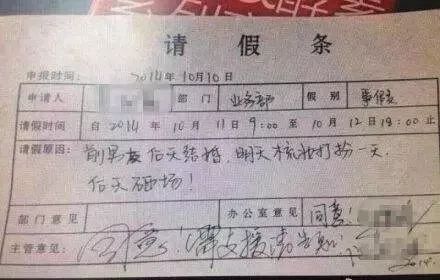 请假条
申报时间： 2014年10月10日
申请人 部门 业务部 假别 事假
请假时间 自2014年10月11日9:00至10月12日18:00止
请假原因： 前男友后天结婚，明天梳妆打扮一天，
后天砸场！
部门意见 办公室意见 同意！
主管意见： 同意！需支援请告知！
2014.